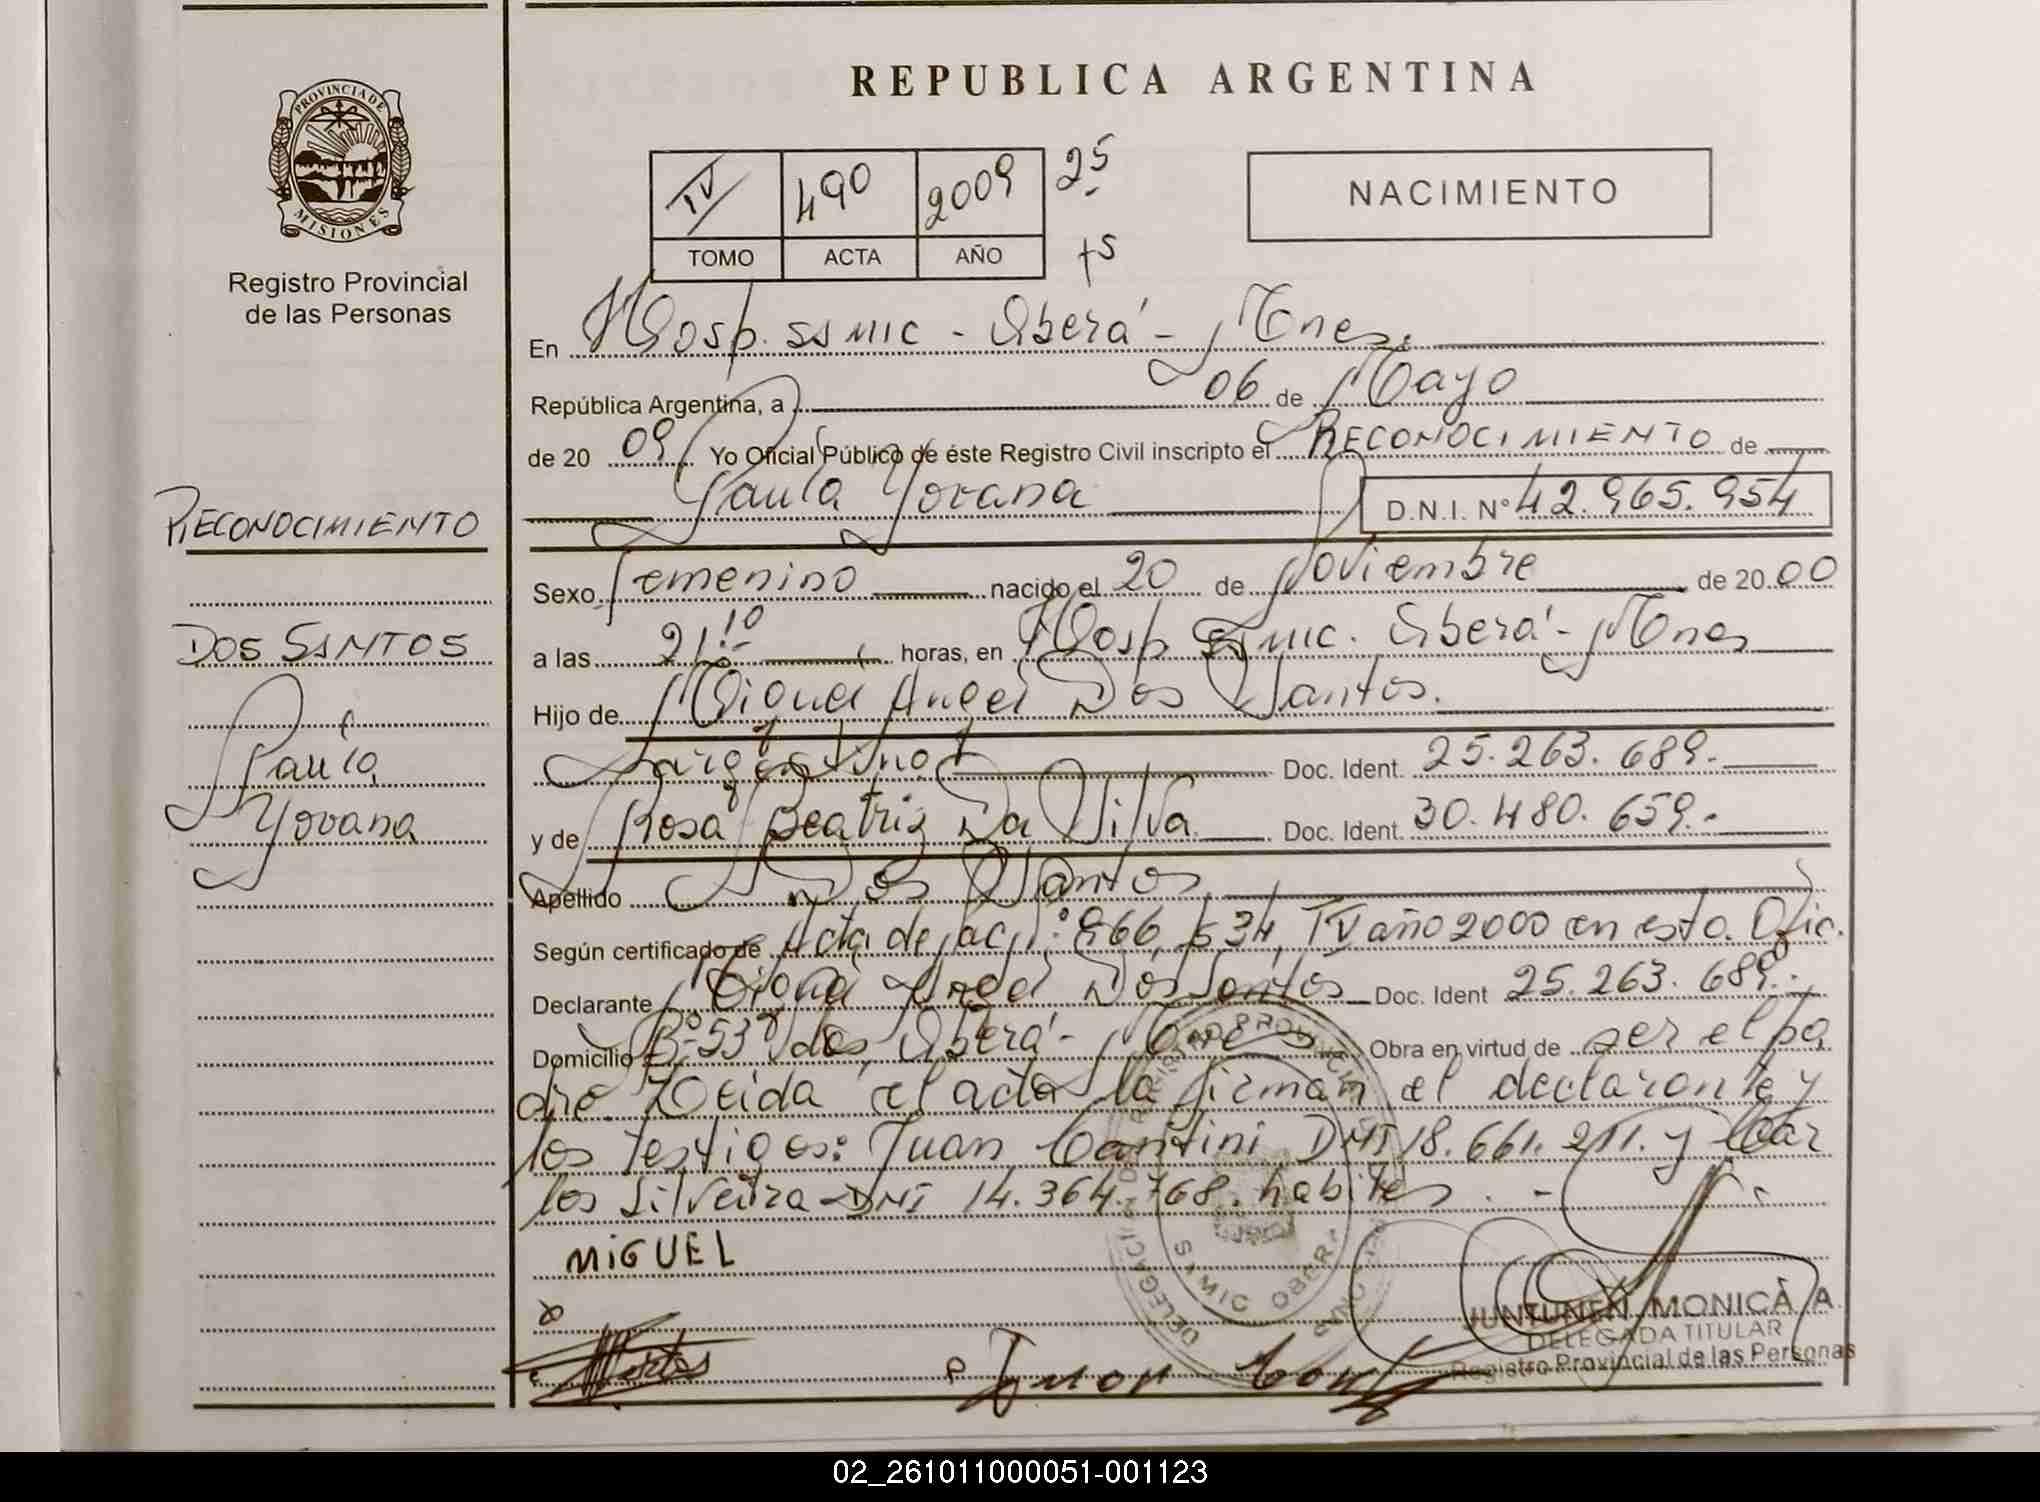 REPUBLICA ARGENTINA
PROVINCIA DE
MISIONES
Registro Provincial
de las Personas
IV 490 2009 25
TOMO ACTA AÑO
NACIMIENTO
En Hosp. SSMIC - Oberá - Mnes.
República Argentina, a 06 de Mayo
de 20 09 Yo Oficial Público de éste Registro Civil inscripto el RECONOCIMIENTO de
Paula Yovana D.N.I. Nº 42.965.954
RECONOCIMIENTO
Sexo Femenino nacido el 20 de Noviembre de 20 00
DOS SANTOS
a las 21 10 horas, en Hosp SSMIC. Oberá - Mnes
Hijo de Miguel Angel Dos Santos.
Paula
Argentino Doc. Ident. 25.263.689.-
Yovana
y de Rosa Beatriz Da Silva Doc. Ident. 30.480.659.-
Apellido Dos Santos
Según certificado de Acta de Nac. Nº: 966, Tº IV año 2000 en esta Ofic.
Declarante Miguel Angel Dos Santos Doc. Ident 25.263.689.-
Domicilio Bº 53 Oberá - Mnes Obra en virtud de ser el pa
dre. Leida el acta la firman el declarante y
los testigos: Juan Cantini DNI 18.661.211. y Car
los Silveira DNI 14.364.768. habiles. -
MIGUEL
DELEGACION
SAMIC OBERA
JUNTUNEN, MONICA A
DELEGADA TITULAR
Registro Provincial de las Personas
Juan
02_261011000051-001123